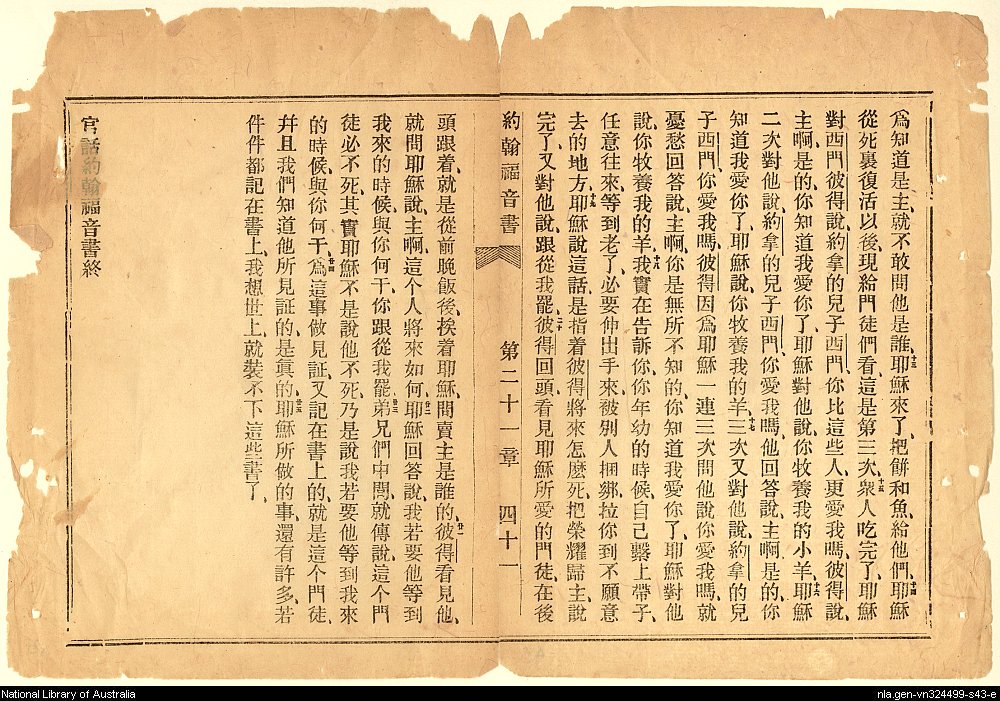 爲知道是主、就不敢問他是誰、十三耶穌來了、把餠和魚、給他們、十四耶穌
從死裏復活以後、現給門徒們看、這是第三次、十五衆人吃完了、耶穌
對西門彼得說、約拿的兒子西門、你比這些人、更愛我嗎、彼得說、
主啊、是的、你知道我愛你了、耶穌對他說、你牧養我的小羊、十六耶穌
二次對他說、約拿的兒子西門、你愛我嗎、他回答說、主啊、是的、你
知道我愛你了、耶穌說、你牧養我的羊、十七三次又對他說、約拿的兒
子西門、你愛我嗎、彼得因爲耶穌一連三次問他說、你愛我嗎、就
憂愁回答說、主啊、你是無所不知的、你知道我愛你了、耶穌對他
說、你牧養我的羊、十八我實在告訴你、你年幼的時候、自己繫上帶子、
任意往來、等到老了、必要伸出手來、被別人捆綁、拉你到不願意
去的地方、十九耶穌說這話、是指着彼得將來怎麽死、把榮耀歸主、說
完了、又對他說、跟從我罷、二十彼得回頭、看見耶穌所愛的門徒、在後
約翰福音書 第二十一章 四十一
頭跟着、就是從前晚飯後、挨着耶穌、問賣主是誰的、廿一彼得看見他、
就問耶穌說、主啊、這个人將來如何、廿二耶穌回答說、我若要他等到
我來的時候、與你何干、你跟從我罷、廿三弟兄們中間、就傳說、這个門
徒必不死、其實耶穌不是說他不死、乃是說我若要他等到我來
的時候、與你何干、廿四爲這事做見証、又記在書上的、就是這个門徒、
幷且我們知道他所見証的是眞的、廿五耶穌所做的事、還有許多、若
件件都記在書上、我想世上、就裝不下這些書了、
官話約翰福音書終
National Library of Australia
nla.gen-vn324499-s43-e